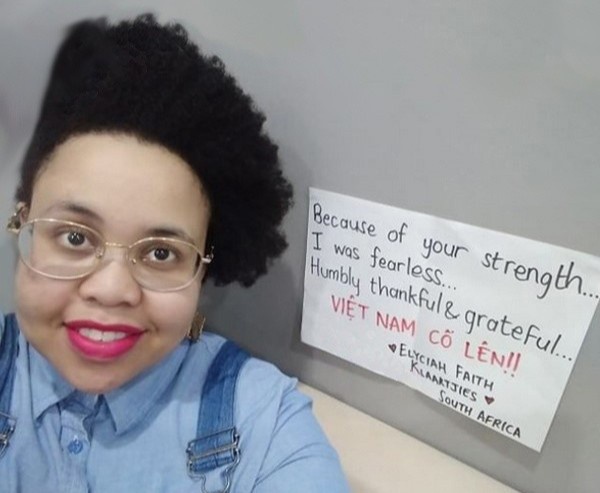 Because of your strength...
I was fearless...
Humbly thankful & grateful...
VIỆT NAM CỐ LÊN!!
♥ELYCIAH FAITH
KLAARTJIES ♥
SOUTH AFRICA